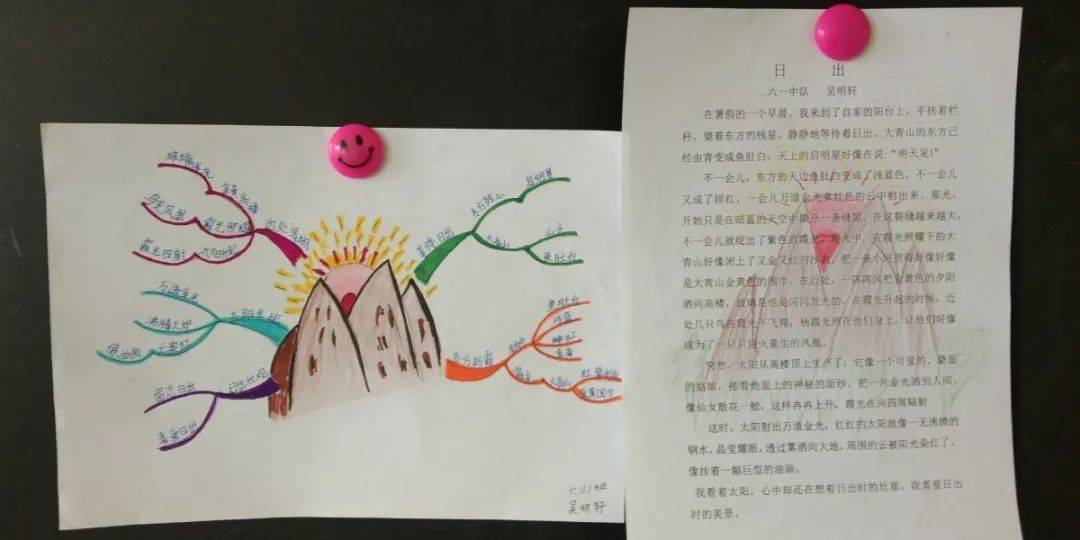 珠璃发光
近处景物
霞光照耀
霞光四射
太阳升起
万道金光
沸腾火炉
像油画
云染红
太阳光灿
留恋日出
喜爱日出
日出壮观
等待日出
东方残星
启明星
大青山
鱼肚白
东方彩霞
鱼肚白
浅蓝
绯红
霞光
大青山
六(1)班
吴明轩
日 出
六一中队 吴明轩
在暑假的一个早晨，我来到了自家的阳台上，手扶着栏
杆，望着东方的残星，静静地等待着日出。大青山的东方已
经由青变成鱼肚白，天上的启明星好像在说：“明天见！”
不一会儿，东方的天边鱼肚白变成了浅蓝色，不一会儿
又成了绯红，一会儿万道金光拿红色的云中射出来，那光，
开始只是在暗蓝的天空中撕开一条缝隙，在这裂缝越来越大，
不一会儿就绽出了紫色的霞光，晚光中，在霞光照耀下的大
青山好像闭上了又金又红的纱衣，把一条小河照得好像好像
是大青山金黄色的围巾。在近处，一阵阵风把金黄色的夕阳
洒向高楼，玻璃是也是闪闪发光的，在霞光升起的时候，近
处几只鸟在霞光下飞翔，杨霞光照在他们身上，让他们好像
成为了一只只浴火重生的凤凰。
突然，太阳从高楼顶上生产了，它像一个可爱的，蒙面
的姑娘，接着他面上的神秘的面纱。把一片金光洒到人间，
像仙女散花一般，这样冉冉上升，霞光在向四周辐射
这时，太阳射出万道金光，红红的太阳就像一无沸腾的
钢水，晶莹耀眼，透过雾洒向大地，周围的云被阳光染红了，
像挂着一幅巨型的油画。
我看着太阳，心中却还在想着日出时的壮观，我喜爱日出
时的美景。